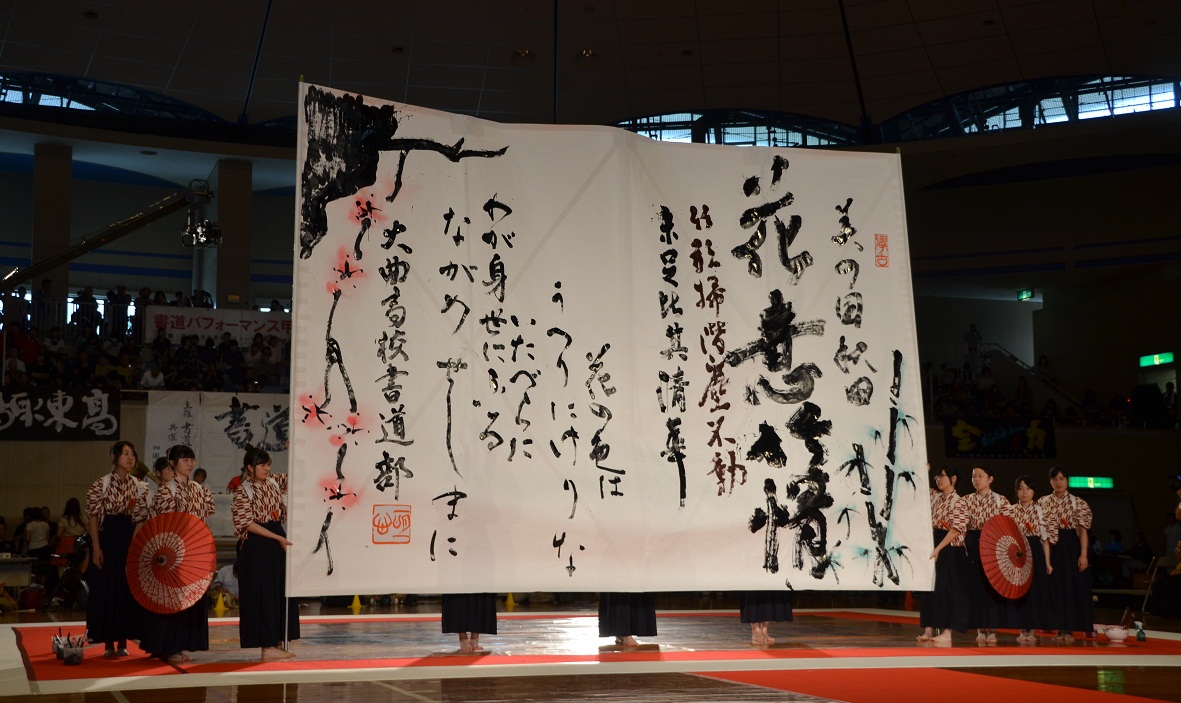 美の国秋田
花意竹情
竹影掃階塵不動
未足比其清華
花の色は
うつりにけりな
いたづらに
わが身世にふる
ながめせしまに
大曲高校書道部
書道パフォーマンス甲
東高
書道